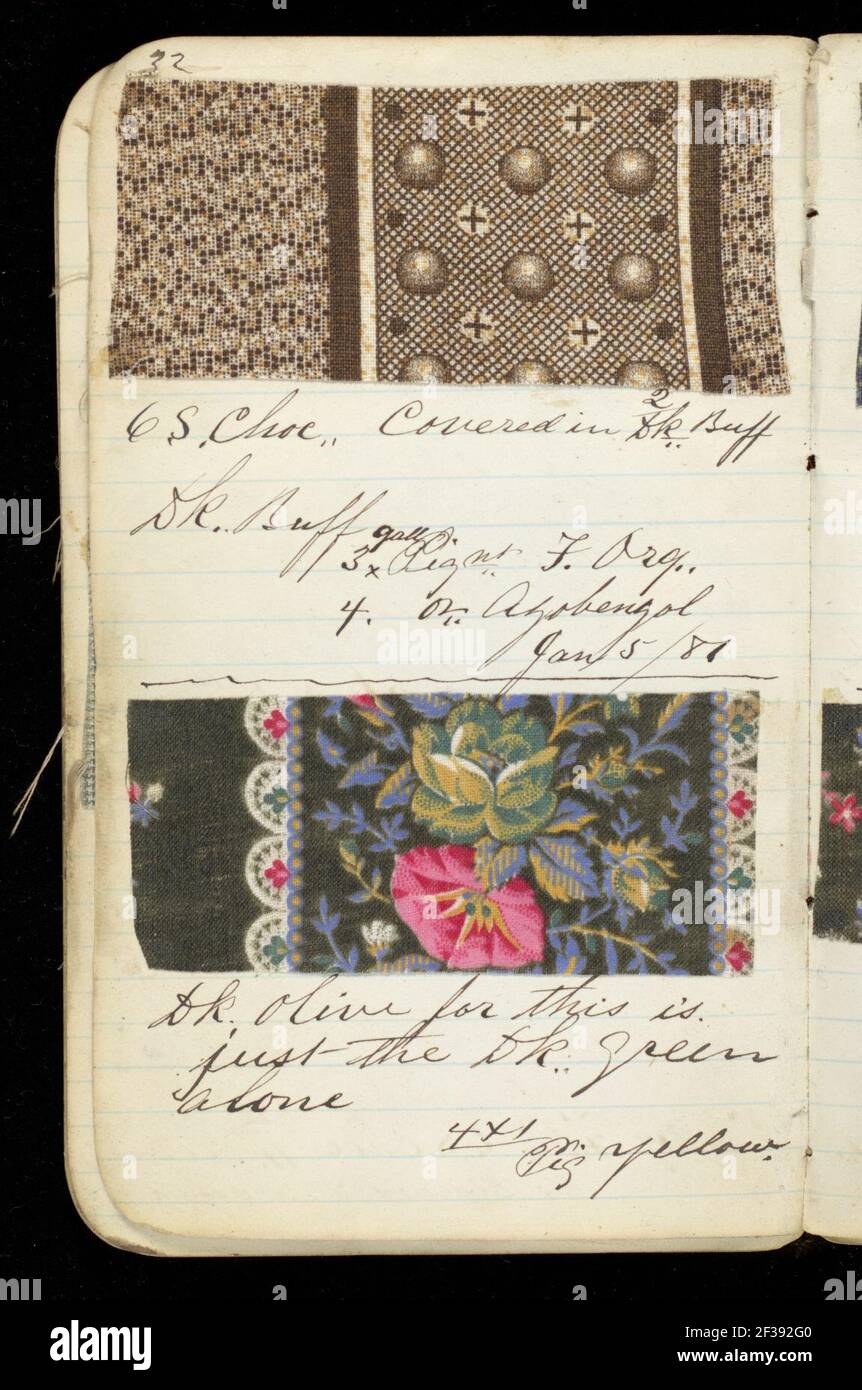 32
6 S. Choc,, Covered in 2 Dk. Buff
Dk. Buff
3 x gall Pig nt F. Org.,
4. or
Jan 5/81
Dk. Olive for this is
just the Dk. green
alone
4x1
Pig yellow.
alamy
Image ID: 2F392G0
www.alamy.com